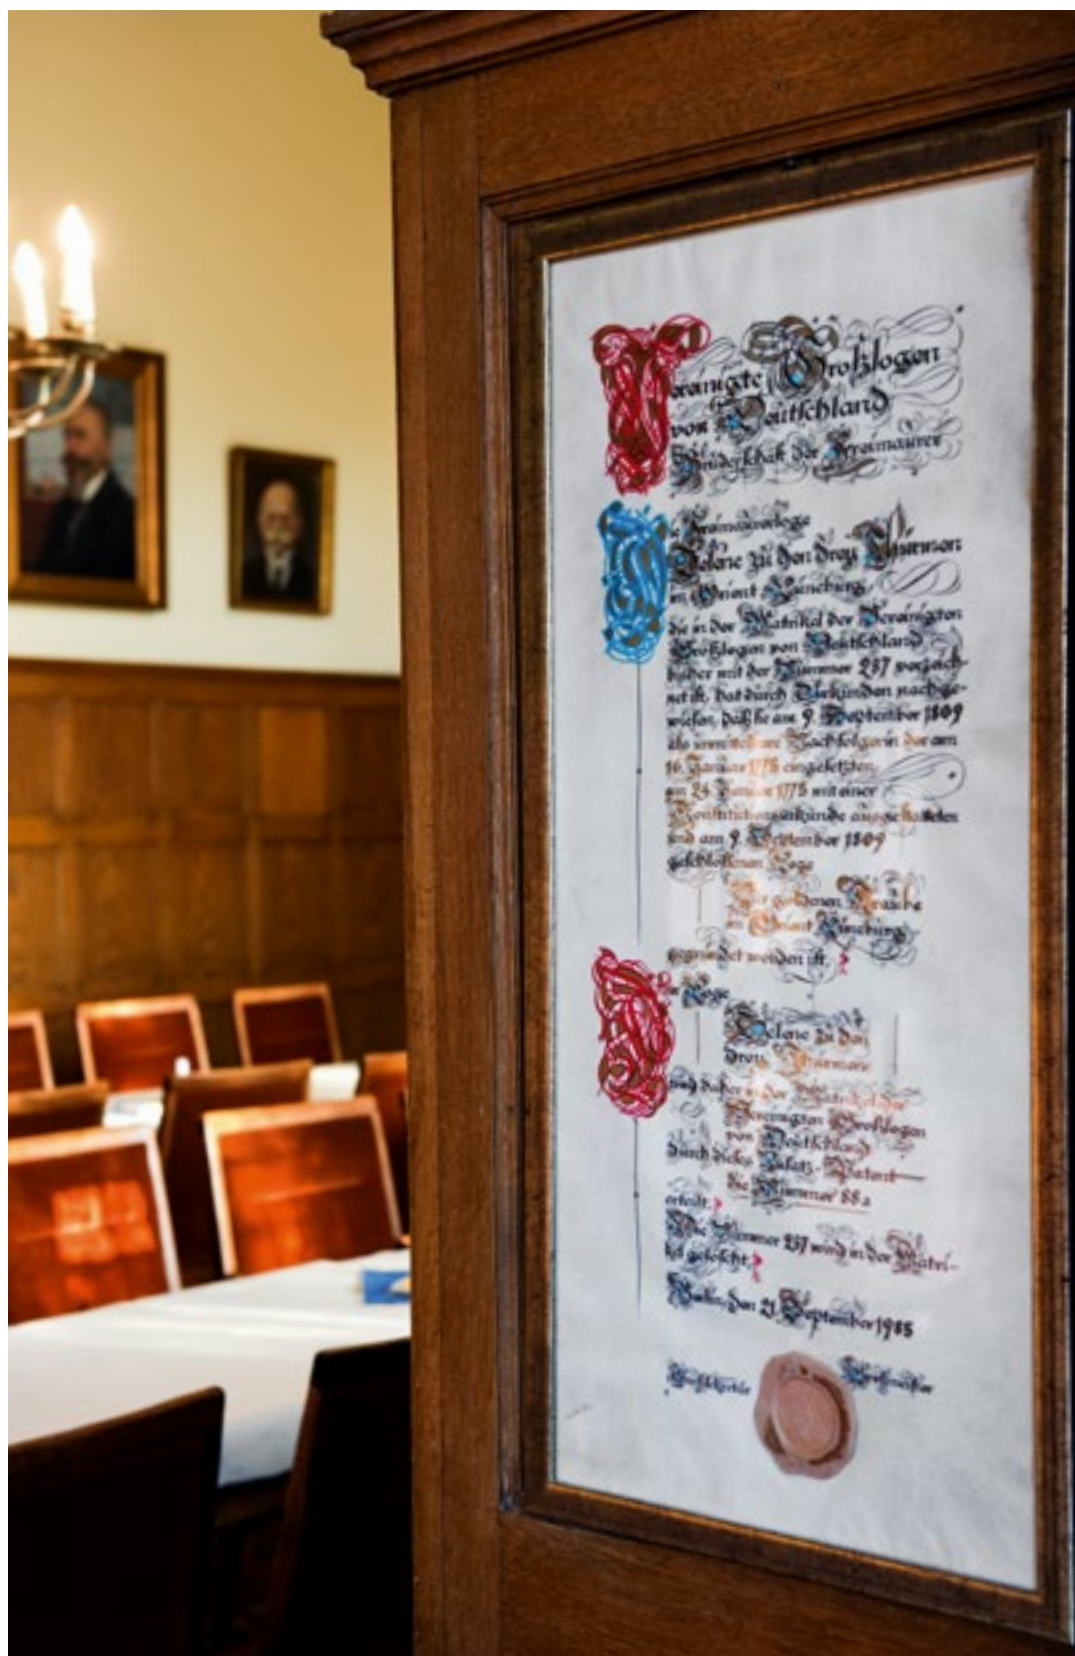 Vereinigte Großlogen
von Deutschland
Bruderschaft der Freimaurer
Die Freimaurerloge
Selene zu den drey Thürmen
im Orient Lüneburg,
die in der Matrikel der Vereinigten
Großlogen von Deutschland
bisher mit der Nummer 237 verzeich-
net ist, hat durch Urkunden nachge-
wiesen, daß sie am 9. September 1809
als unmittelbare Nachfolgerin der am
16. Januar 1775 eingesetzten,
am 24. Januar 1775 mit einer
Konstitutionsurkunde ausgestatteten
und am 9. September 1809
geschlossenen Loge
Zur goldenen Traube
im Orient Lüneburg
gegründet worden ist.
Der Loge
Selene zu den
drey Thürmen
wird daher in der Matrikel der
Vereinigten Großlogen
von Deutschland
durch dieses Zusatz-Patent
die Nummer 88a
erteilt.
Die Nummer 237 wird in der Matri-
kel gelöscht.
Berlin, den 21. September 1985
Großmeister